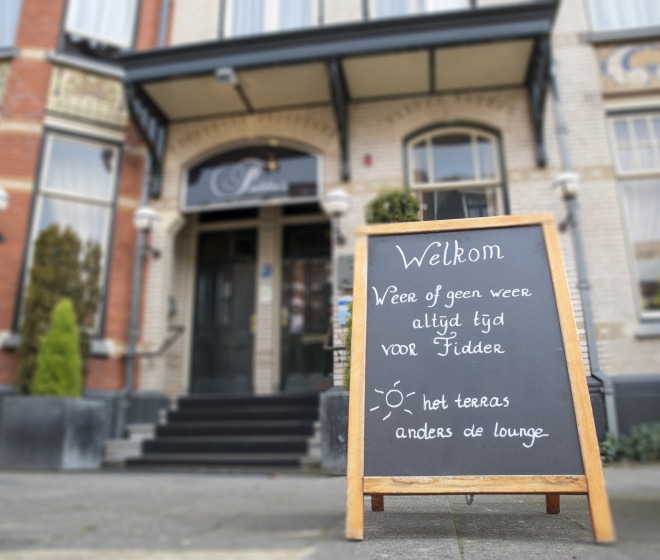 Fidder
Welkom
Weer of geen weer
altijd tijd
voor Fidder
het terras
anders de lounge